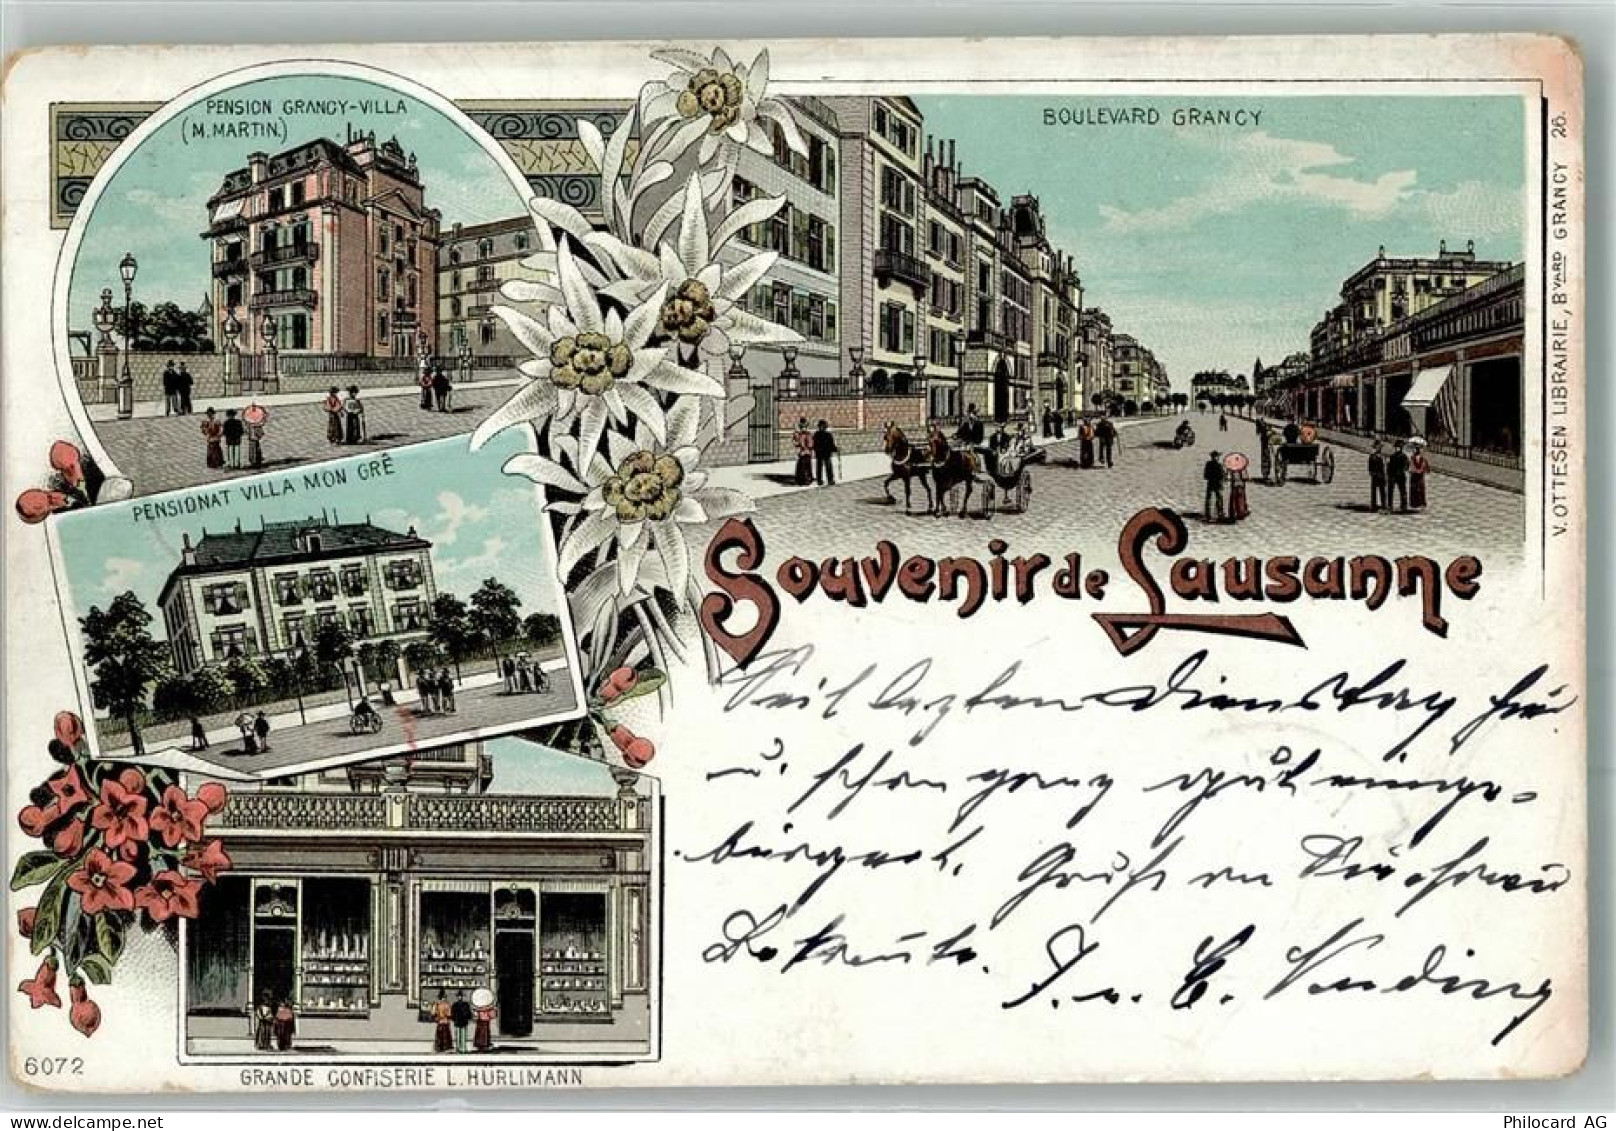 PENSION GRANCY-VILLA
(M. MARTIN.)
BOULEVARD GRANCY
V. OTTESEN LIBRAIRIE, BVARD GRANCY 26.
PENSIONAT VILLA MON GRÊ
Souvenir de Lausanne
Seit letzten Dienstag hier
u. schon ganz gut einge-
bürgert. Gruß an
J. u. E.
GRANDE CONFISERIE L. HÜRLIMANN
6072
Philocard AG